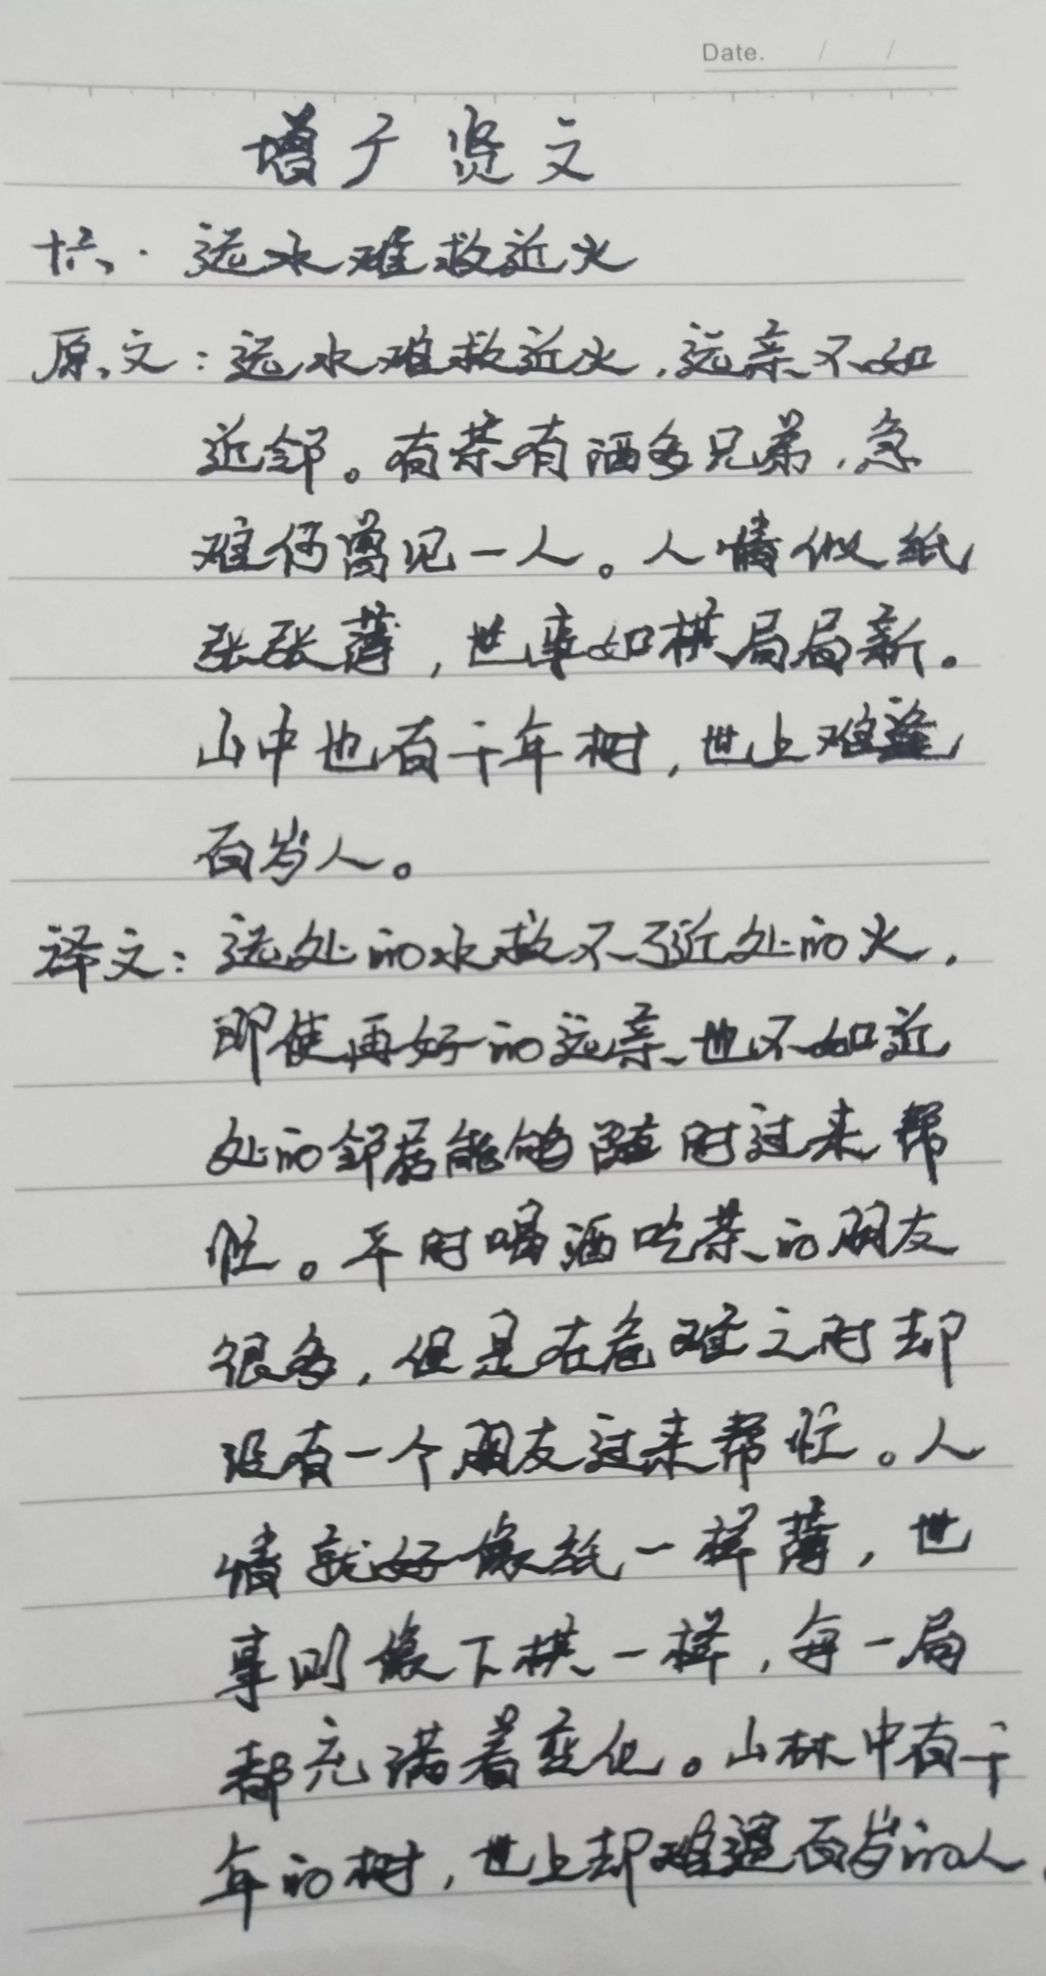 Date. / /
增广贤文
十六、. 远水难救近火
原文：远水难救近火，远亲不如
近邻。有茶有酒多兄弟，急
难何曾见一人。人情似纸
张张薄，世事如棋局局新。
山中也有千年树，世上难逢
百岁人。
译文：远处的水救不了近处的火，
即使再好的远亲也不如近
处的邻居能够随时过来帮
忙。平时喝酒吃茶的朋友
很多，但是在危难之时却
没有一个朋友过来帮忙。人
情就好像纸一样薄，世
事则像下棋一样，每一局
都充满着变化。山林中有千
年的树，世上却难遇百岁的人。